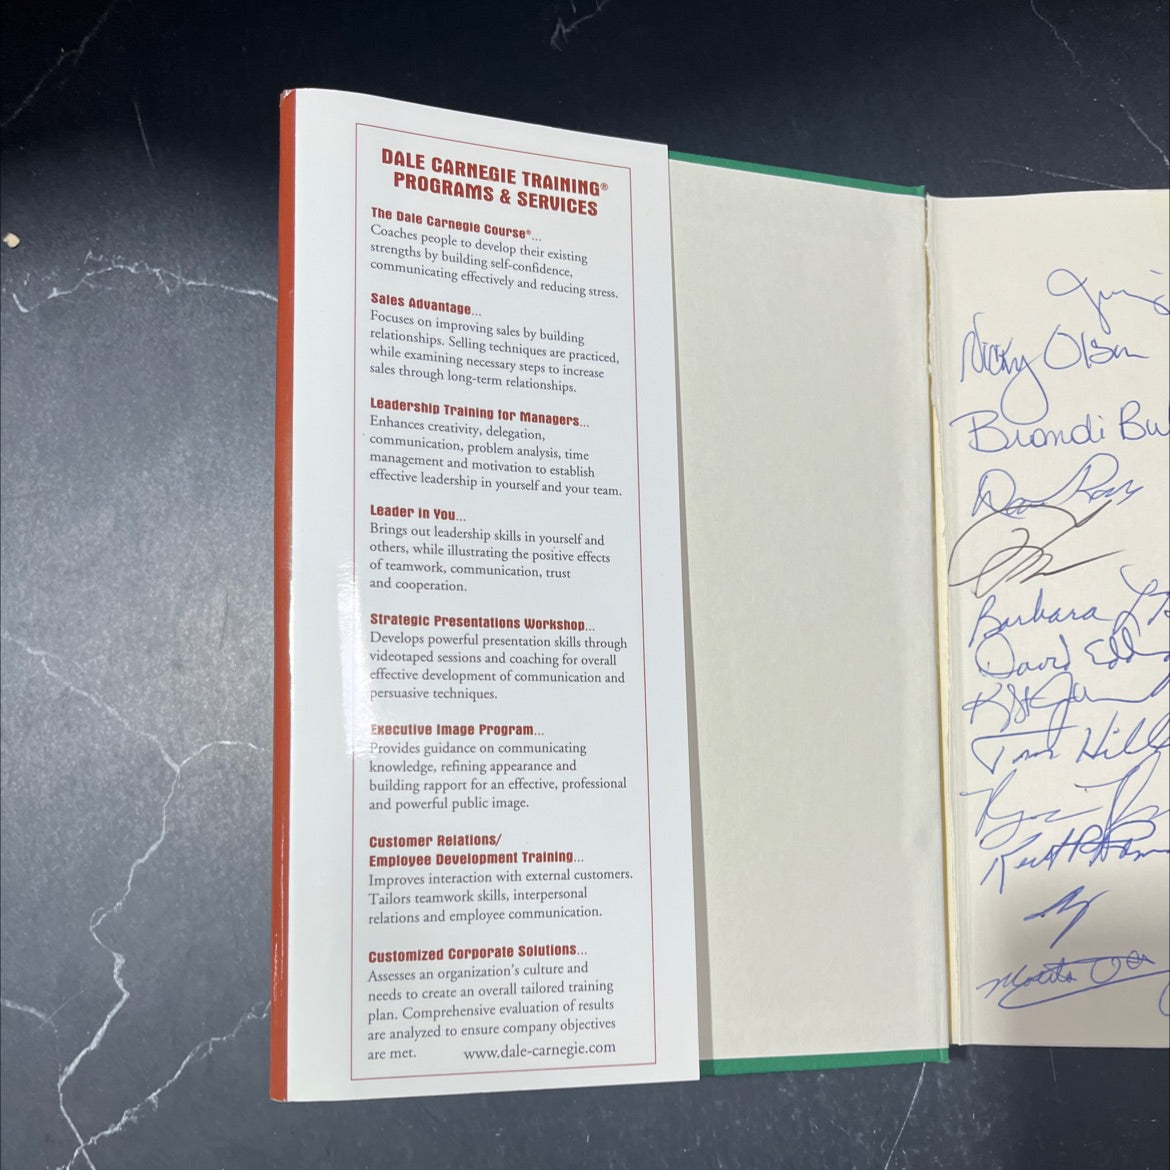 DALE CARNEGIE TRAINING®
PROGRAMS & SERVICES
The Dale Carnegie Course®...
Coaches people to develop their existing
strengths by building self-confidence,
communicating effectively and reducing stress.
Sales Advantage...
Focuses on improving sales by building
relationships. Selling techniques are practiced,
while examining necessary steps to increase
sales through long-term relationships.
Leadership Training for Managers...
Enhances creativity, delegation,
communication, problem analysis, time
management and motivation to establish
effective leadership in yourself and your team.
Leader in You...
Brings out leadership skills in yourself and
others, while illustrating the positive effects
of teamwork, communication, trust
and cooperation.
Strategic Presentations Workshop...
Develops powerful presentation skills through
videotaped sessions and coaching for overall
effective development of communication and
persuasive techniques.
Executive Image Program...
Provides guidance on communicating
knowledge, refining appearance and
building rapport for an effective, professional
and powerful public image.
Customer Relations/
Employee Development Training...
Improves interaction with external customers.
Tailors teamwork skills, interpersonal
relations and employee communication.
Customized Corporate Solutions...
Assesses an organization's culture and
needs to create an overall tailored training
plan. Comprehensive evaluation of results
are analyzed to ensure company objectives
are met. www.dale-carnegie.com
Nicky Olsen
Brandi
Barbara
David
Tom